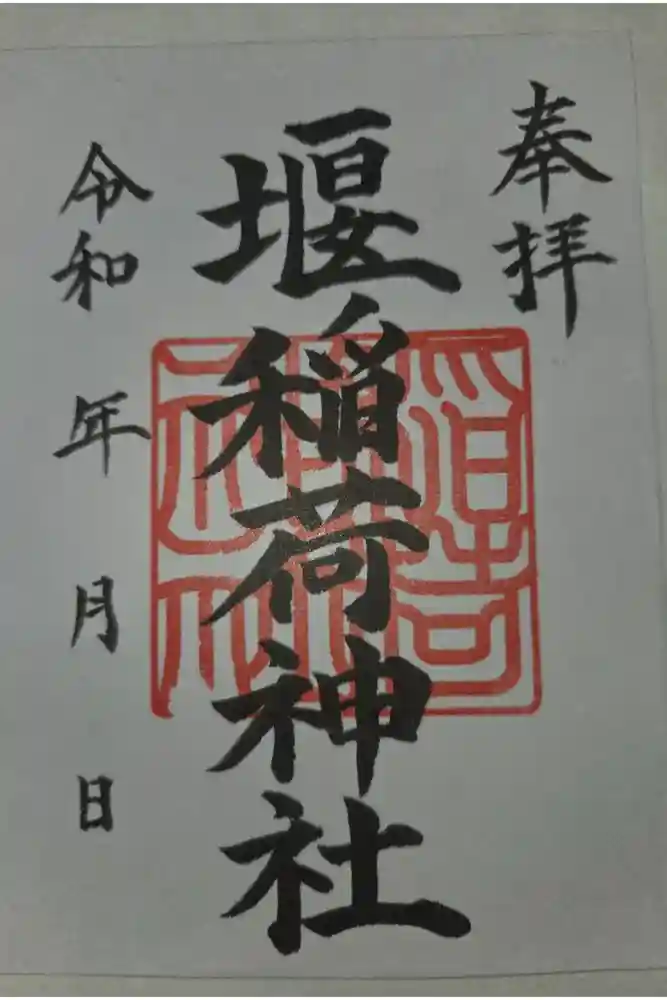 奉拝
堰稲荷神社
令和 年 月 日